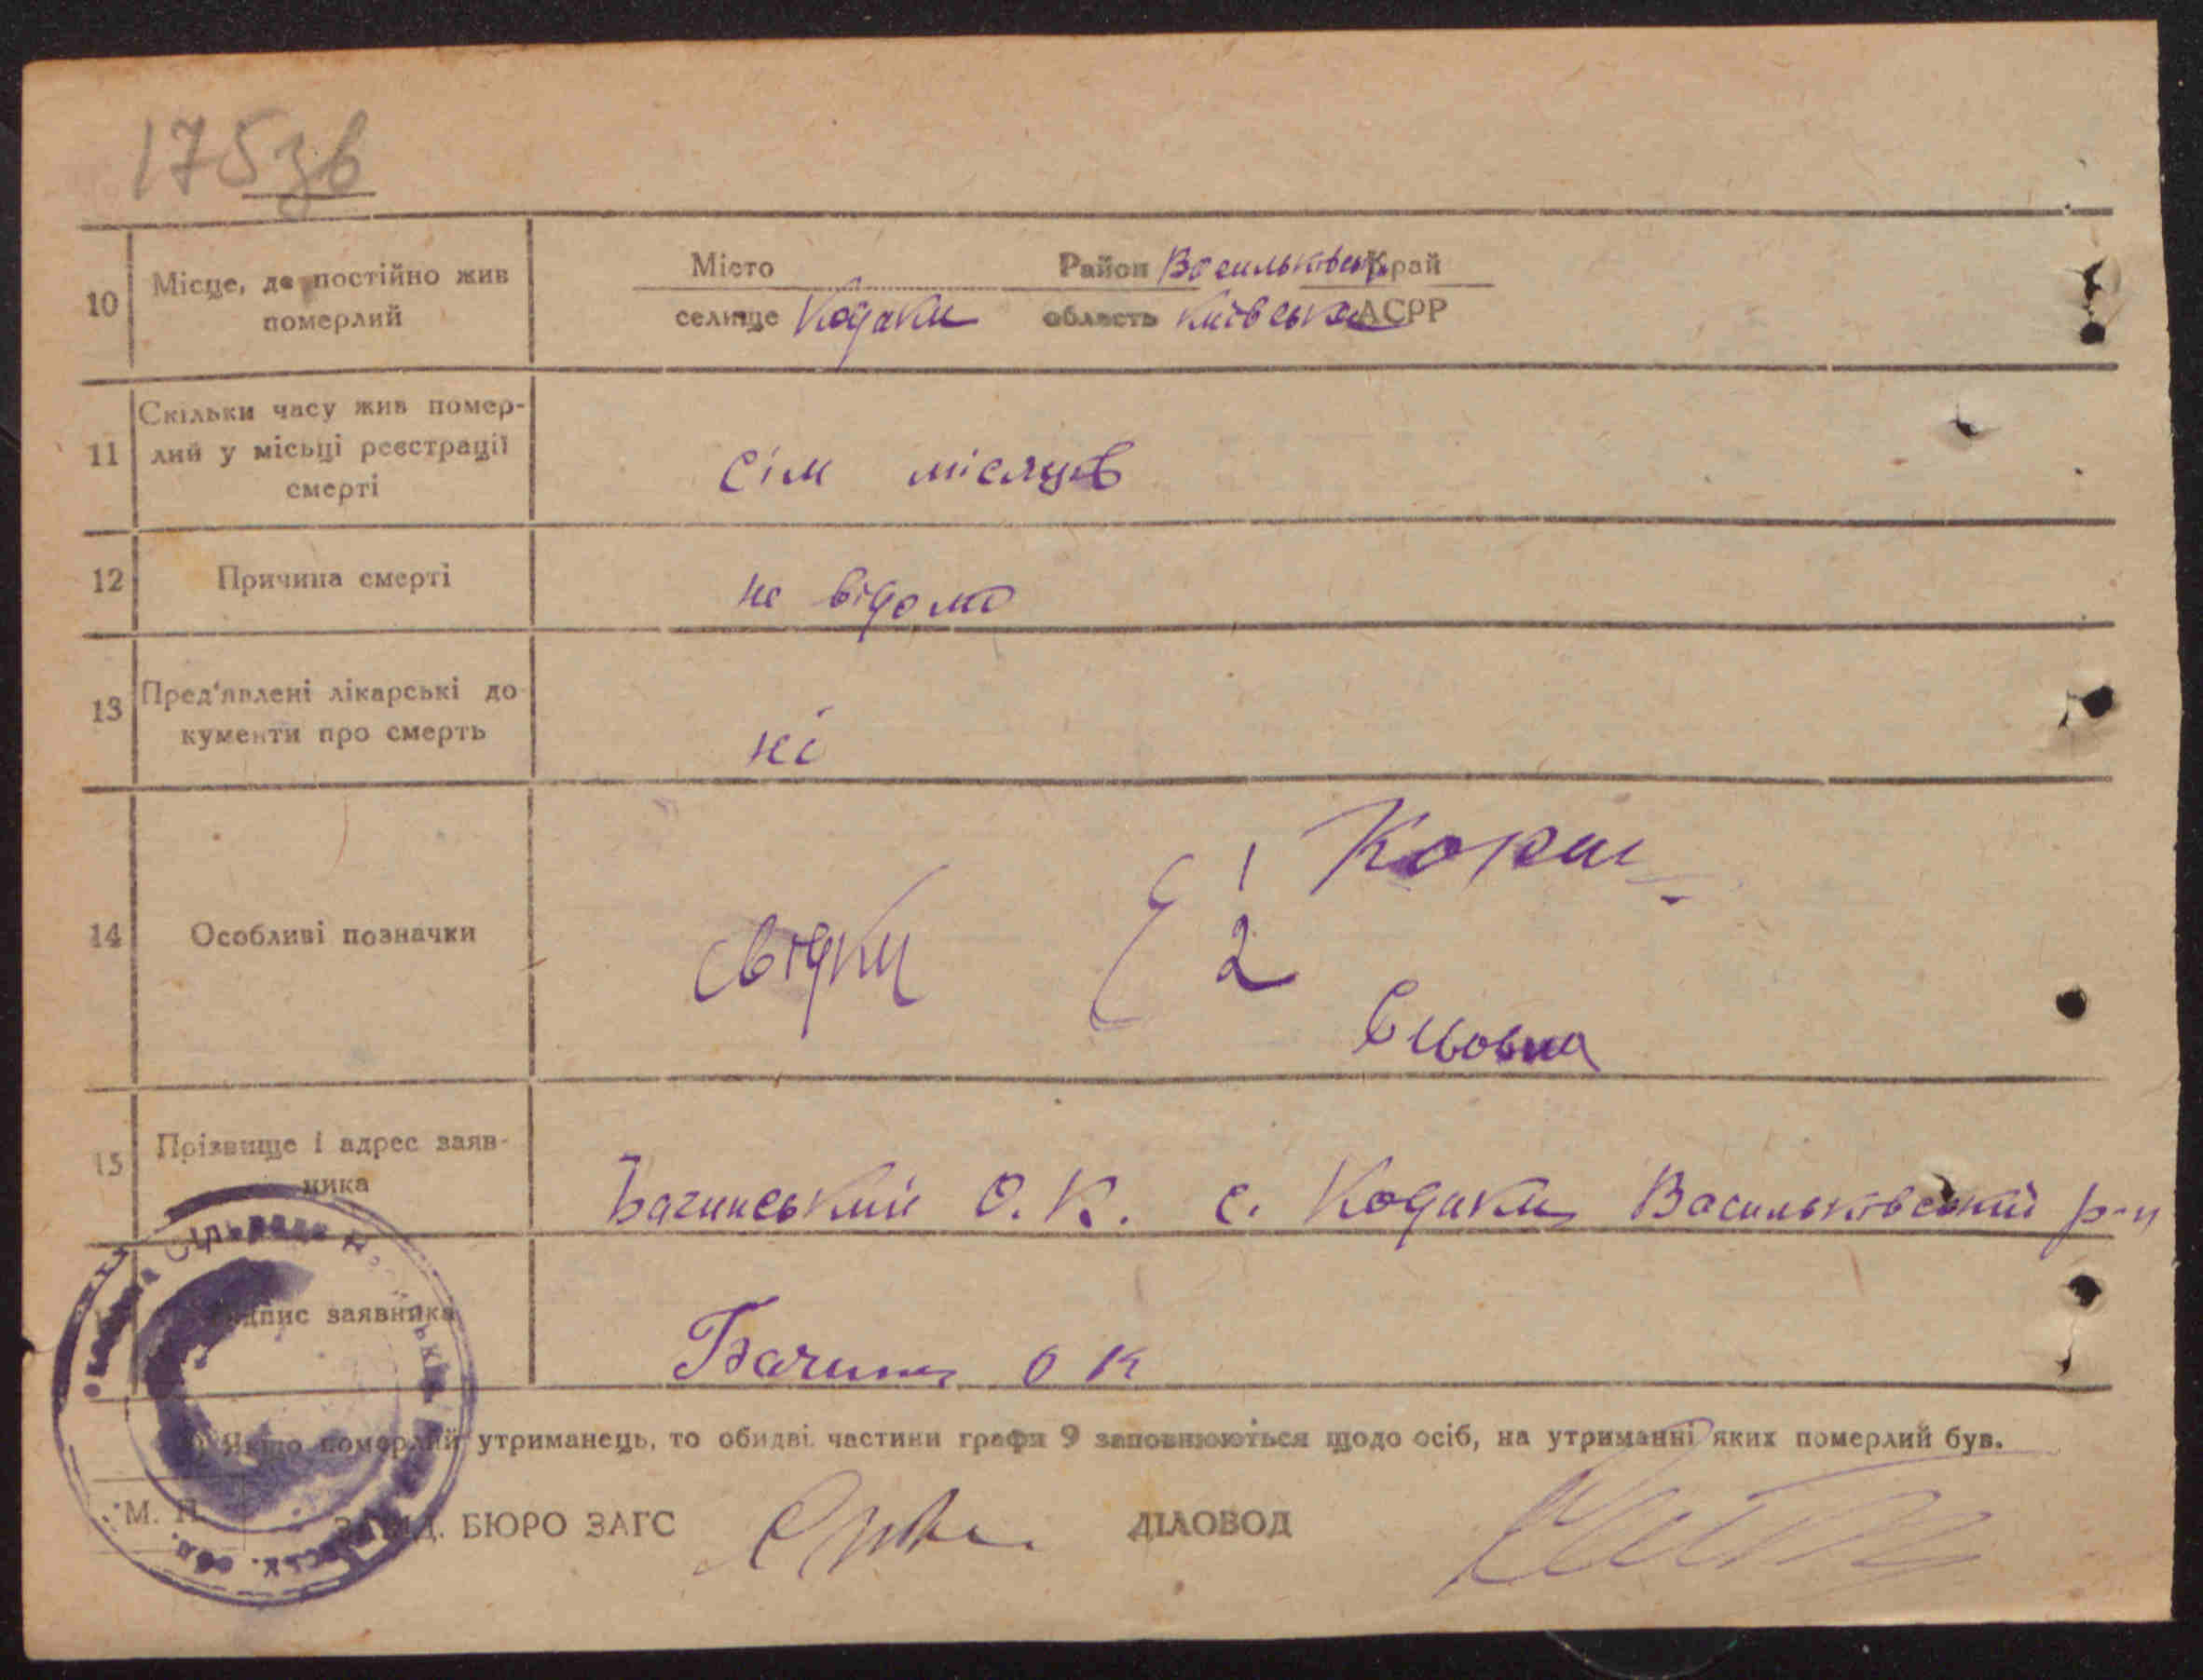 175зв
10 Місце, де постійно жив померлий
Місто Район Васильківськ. Край
селище Кодаки область Київська АСРР
11 Скільки часу жив помер-
лий у місьці реєстрації
смерті
сім місяців
12 Причина смерті не відома
13 Пред'явлені лікарські до
кументи про смерть
ні
14 Особливі позначки свідки
1 Корш
2
15 Прізвище і адрес заяв-
ника
Багинський О. К. с. Кодаки Васильківський р-н
Підпис заявника
О К
Якщо померлий утриманець, то обидві частини графи 9 заповнюються щодо осіб, на утриманні яких померлий був.
М. П. ЗАВІД. БЮРО ЗАГС ДІЛОВОД